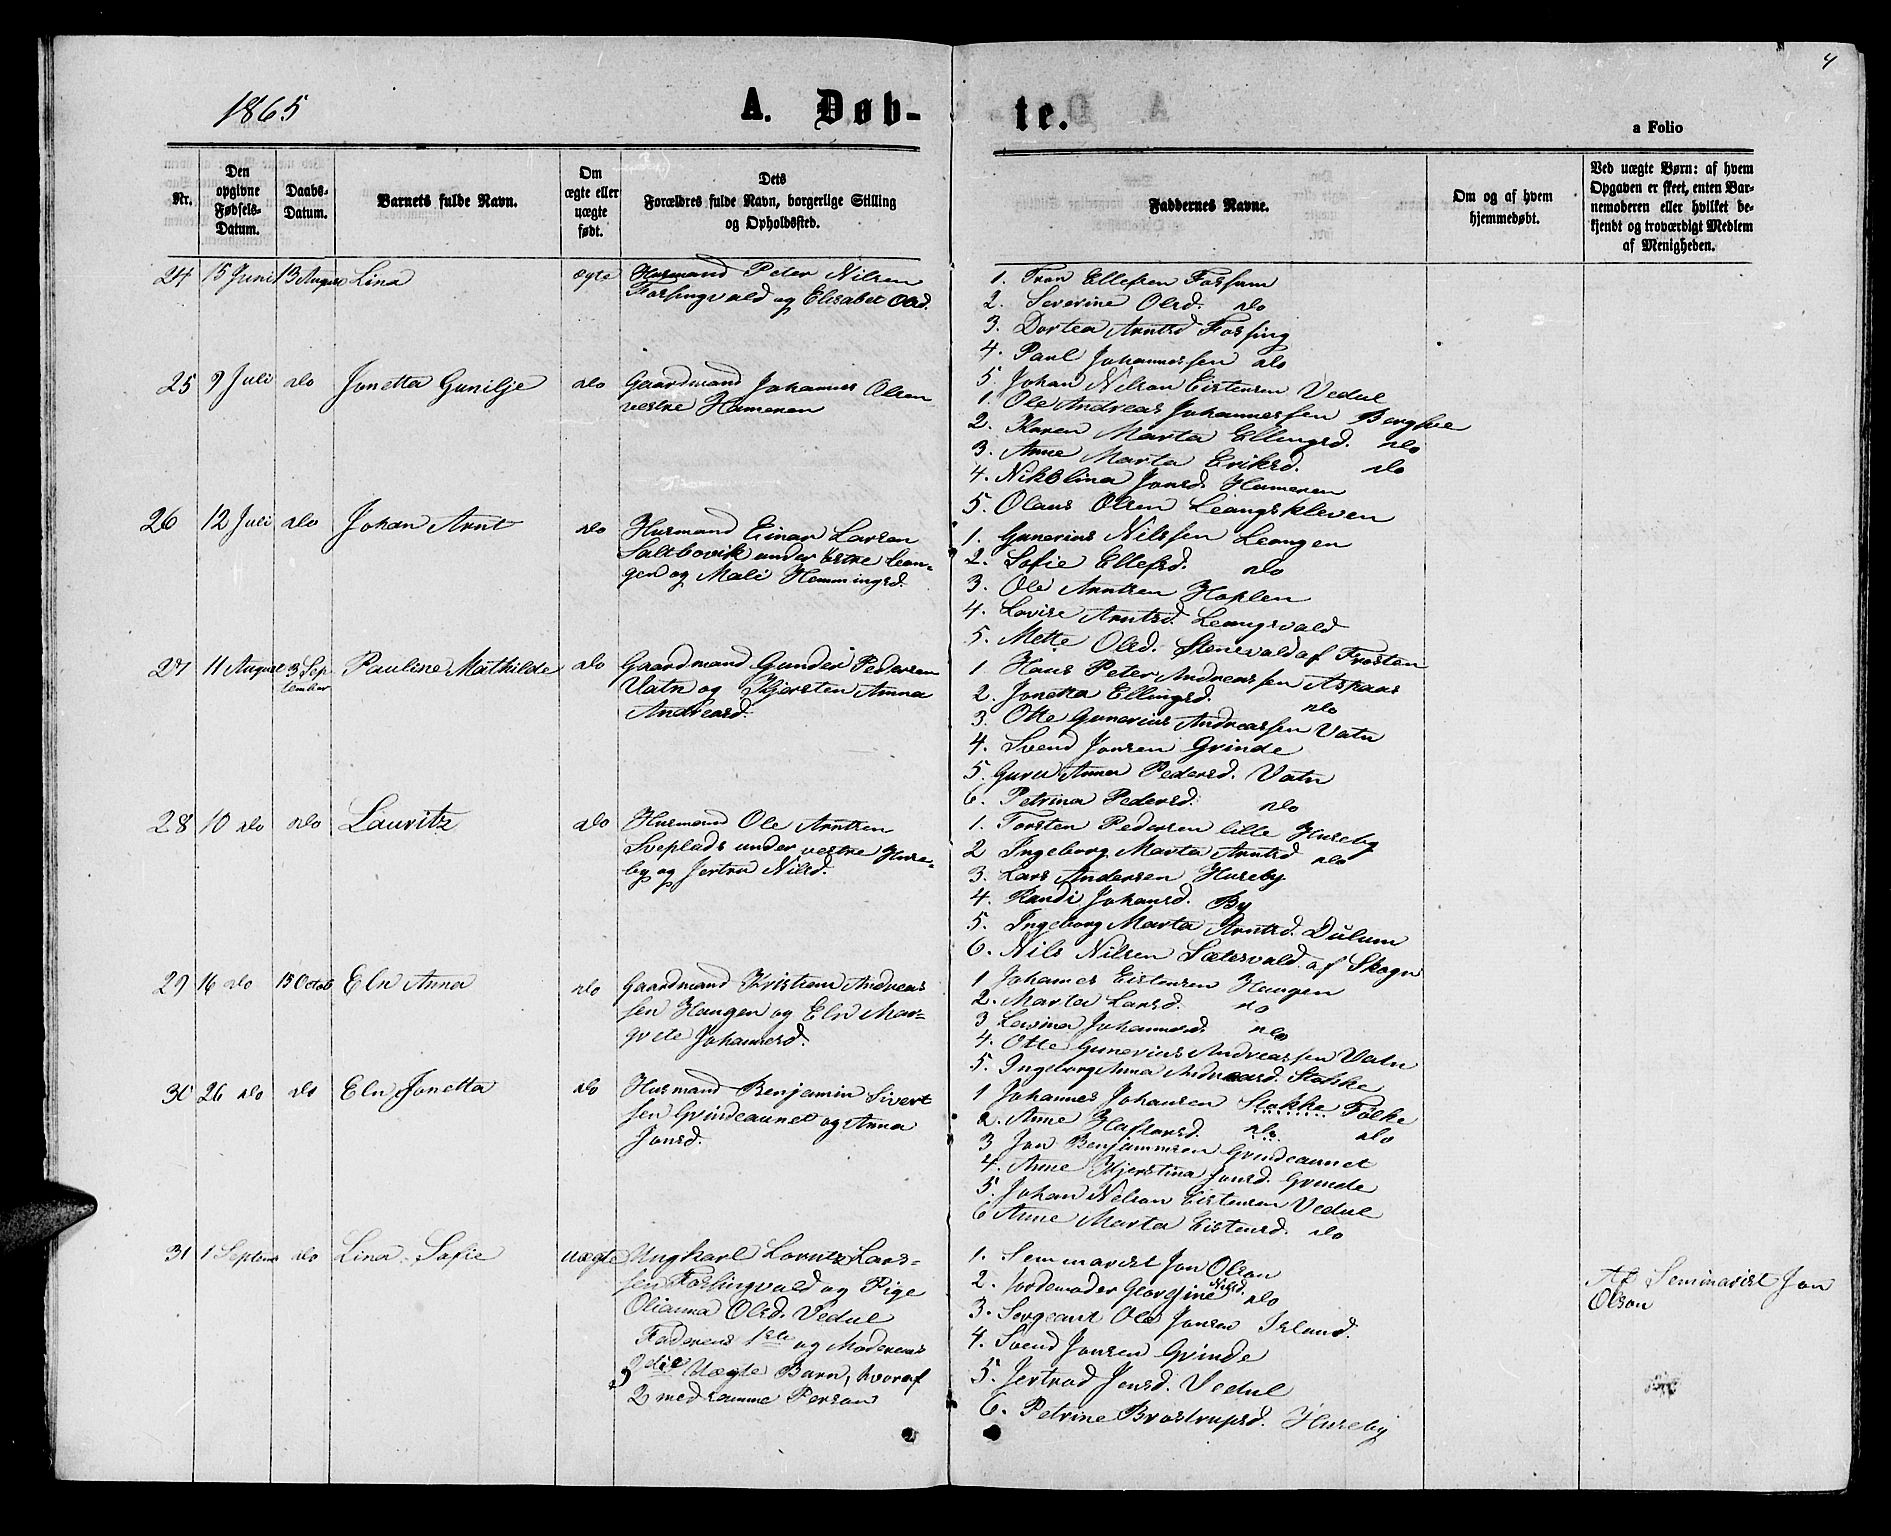 4
1865
A. Døb-
te.
a Folio
Nr.
Den
opgivne
Fødsels-
Datum.
Daabs-
Datum.
Barnets fulde Navn.
Om
ægte eller
uægte
født.
Dets
Forældres fulde Navn, borgerlige Stilling
og Opholdssted.
Faddernes Navne.
Om og af hvem
hjemmedøbt.
Ved uægte Børn: af hvem
Opgaven er skeet, enten Bar-
nemoderen eller hvilket be-
kjendt og troværdigt Medlem
af Menigheden.
24 15 Juni 13 August Lina ægte Husmand Peter Nilsen
Forsingvald og Elisabet Olsd.
1. Tron Ellefsen Forsum
2. Severine Olsd. do
3. Dortea Arntsd Forsing
4. Paul Johannessen do
5. Johan Nilson Eistensen Vedul
25 9 Juli do Jonetta Gunilje do Gaardmand Johannes Olsen
vestre Hameren
1. Ole Andreas Johannessen Borghie
2. Karen Marta Ellingsd. do
3. Anne Marta Eriksd. do
4. Nikolina Jonsd. Hameren
5. Olaus Olsen Leangskleven
26 12 Juli do Johan Arnt do Husmand Einar Larsen
Saltbovik under Østre Lean-
gen og Mali Hemmingsd.
1. Gunerius Nilssen Leangen
2. Sofie Ellefsd. do
3. Ole Arntsen Hoplen
4. Lovise Arntsd. Leangsvald
5. Mette Olsd. Stenevald af Frosten
27 11 August 3 Sep-
tember Pauline Mathilde do Gaardmand Gunder Pedersen
Vatn og Kjersten Anna
Andreasd.
1 Hans Peter Andreassen Aspaas
2. Jonetta Ellingsd. do
3. Otte Gunerius Andreassen Vatn
4. Svend Jonsen Grinde
5. Guru Anna Pedersd. Vatn
6. Petrina Pedersd. do
28 10 do do Lauritz do Husmand Ole Arntsen
Sveplads under vestre Huse-
by og Jertru Nilsd.
1. Torsten Pedersen lille Huseby
2 Ingeborg Marta Arntsd do
3. Lars Andersen Huseby
4. Randi Johansd. By
5. Ingeborg Marta Arntsd. Dulum
6. Nils Nilsen Sætesvald af Skogn
29 16 do 15 Octob Eln Anna do Gaardmand Kristian Andreas
sen Haugen og Eln Mar-
grete Johannesd.
1 Johannes Eistensen Haugen
2. Marta Larsd. do
3. Lavina Johannesd. do
4. Otte Gunerius Andreassen Vatn
5. Ingeborg Anna Andreasd. Stokke
30 26 do do Eln Jonetta do Husmand Benjamin Sivert
sen Grindeaunet og Anna
Jonsd.
1 Johannes Johansen Stokke Folke
2. Anne Haftorsd. do do
3 Jon Benjaminsen Grindeaunet
4. Anne Kjerstina Jonsd. Grinde
5. Johan Nelson Eistensen Vedul
6 Anne Marta Eistensd. do
31 1 Septem do Lina Sofie uægte Ungkarl Lorntz Lars-
sen Forsingvald og Pige
Olianna Olsd. Vedul
Faderens 1ste og Moderens
3die Uægte Barn, hvoraf
2 med samme Person
1. Seminarist Jon Olson
2. Jordemoder Georgine Nilsd. do
3. Sergeant Ole Jonsen Island.
4. Svend Jonsen Grinde
5. Jertrod Jensd. Vedul
6. Petrine Brostrupsd. Huseby
Af Seminarist Jon
Olson